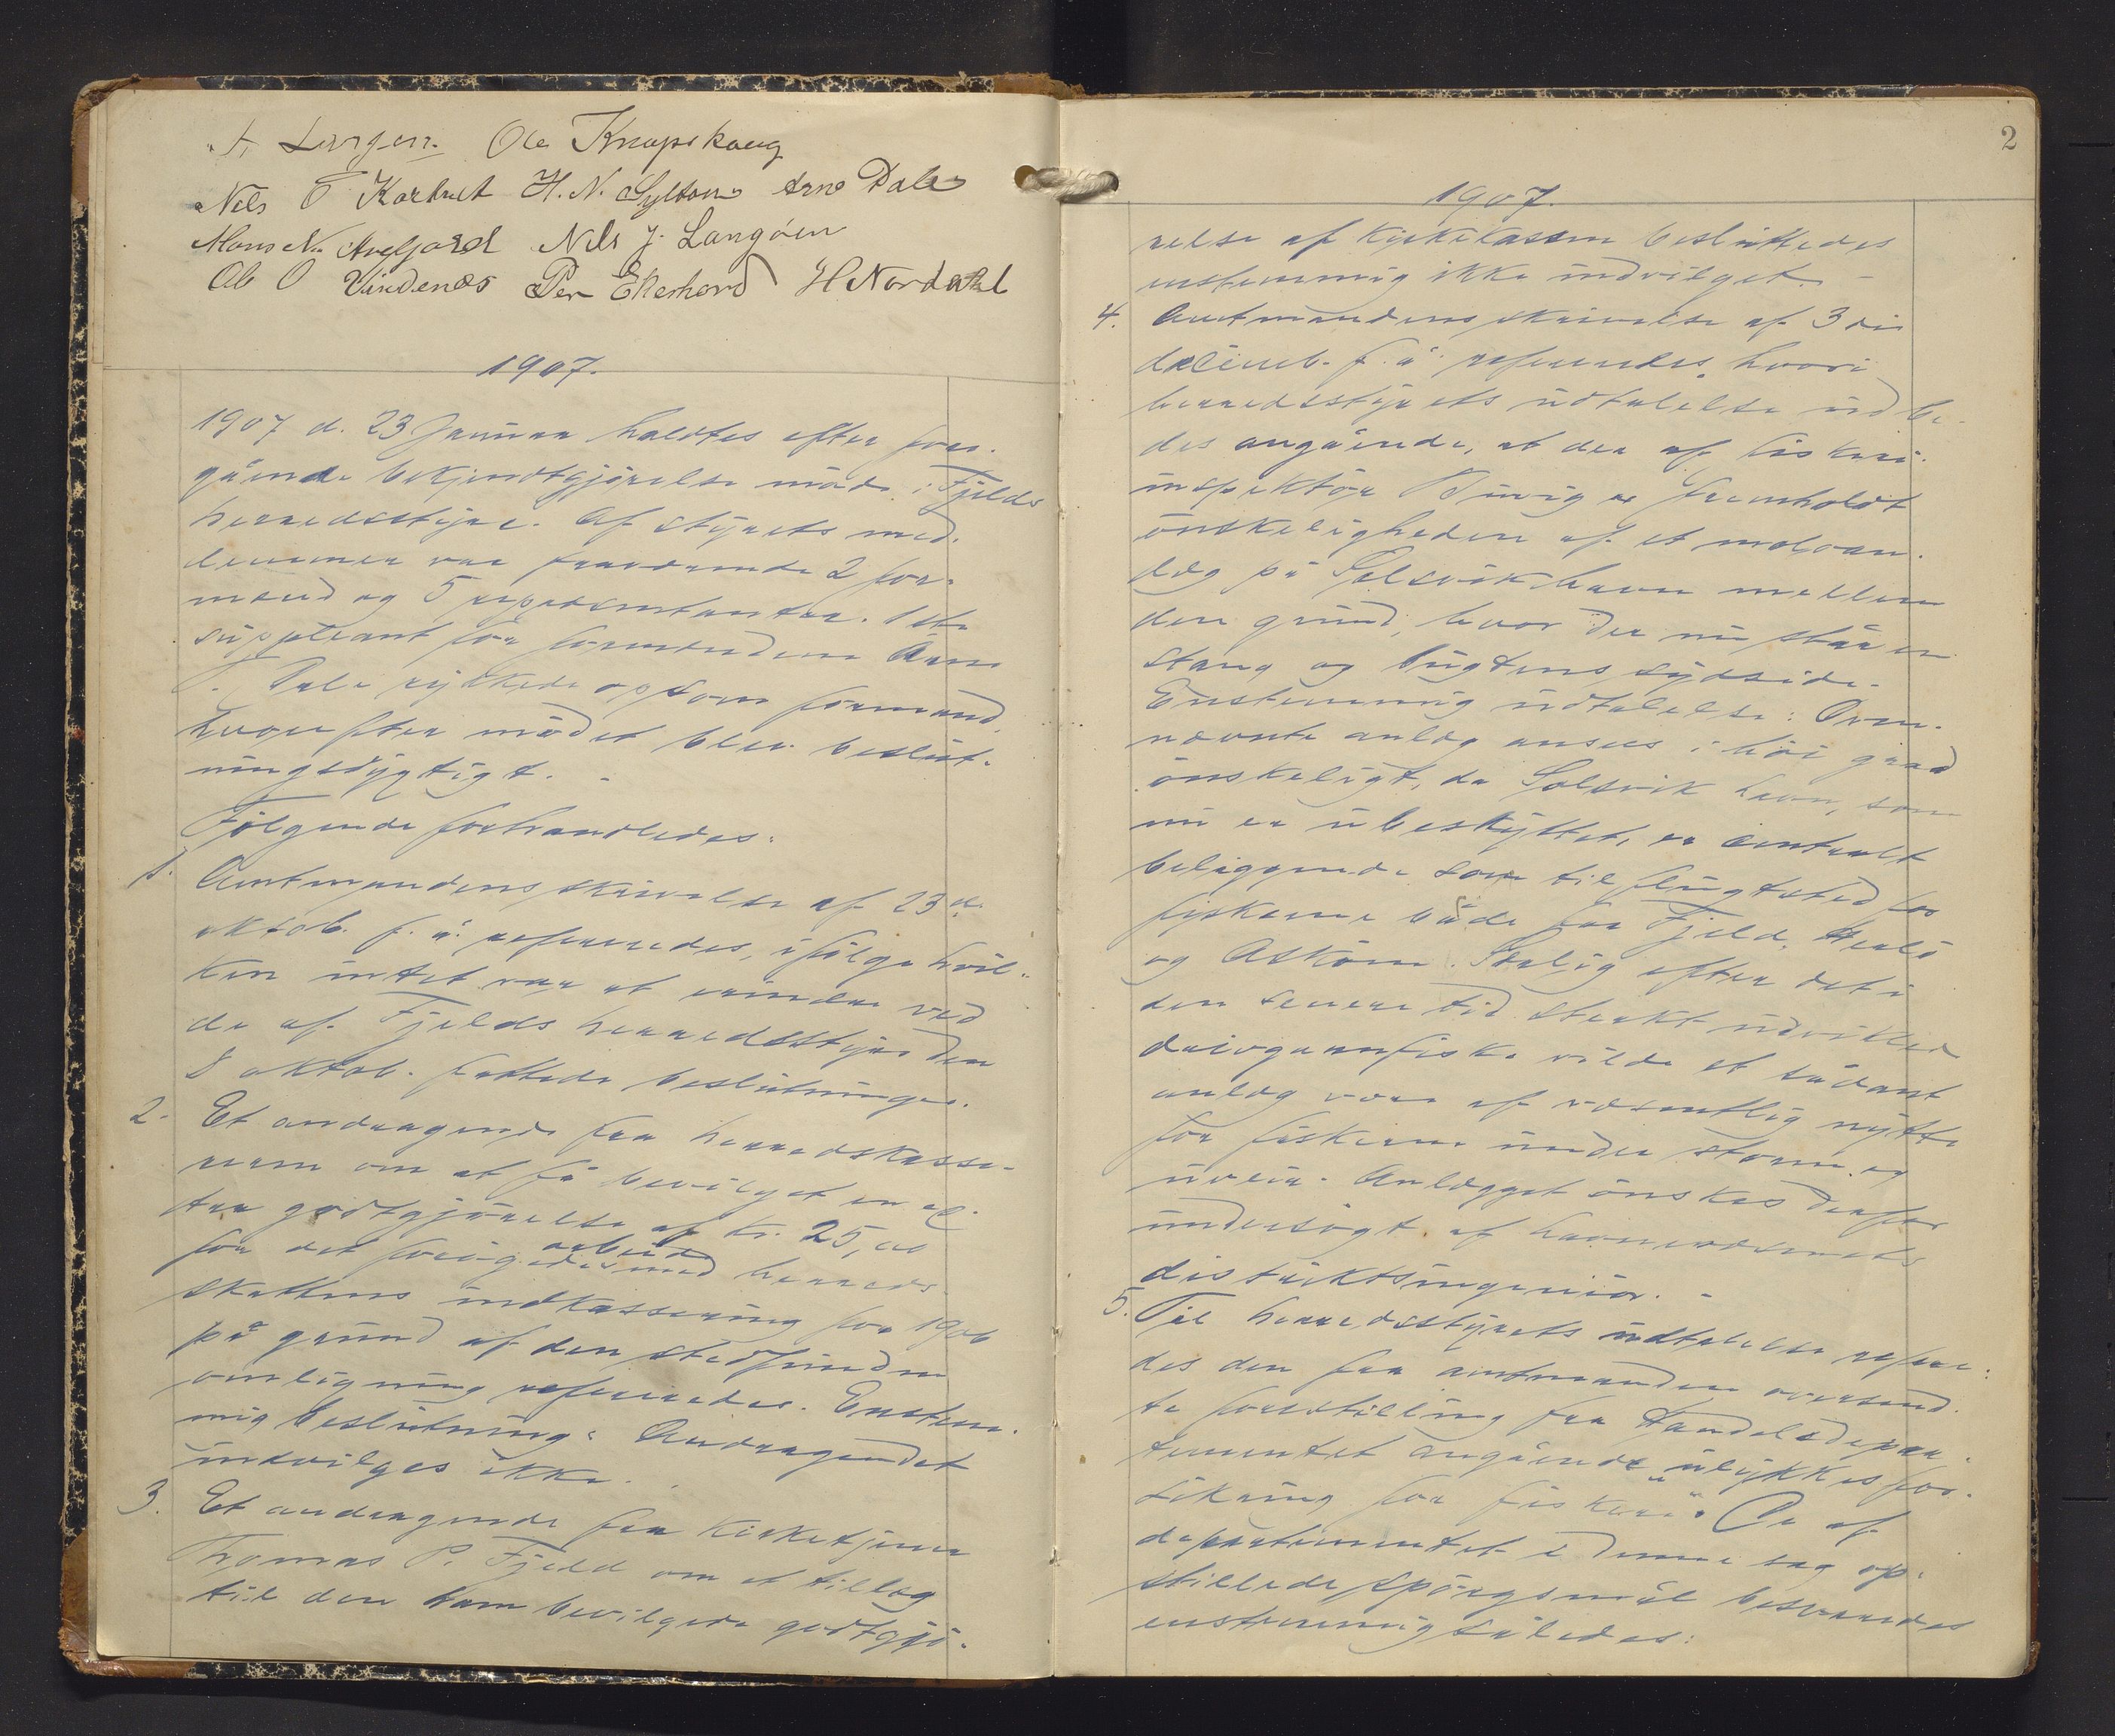 Ole Knapskoug
Nils O Kartveit H. N. Syltøen Arne Dale
Mons N. Nils J. Langøen
Ole O Vindenes Per Ekerhovd H Nordahl
1907.
1907 d. 23 januar holdtes efter fore-
gående bekjendtgjørelse møde i Fjelds
herredsstyre. Af styrets med-
lemmer var fraværende 2 for-
mænd og 5 repræsentanter. 1ste
suppleant for formændene Arne
T. Dale rykkede op som formand,
hvorefter mødet blev beslut-
ningsdygtigt. -
Følgende forhandledes:
1. Amtmandens skrivelse af 23de
oktob. f. å. refereredes, ifølge hvil-
ken intet var at erindre ved
de af Fjelds herredsstyre den
8 oktob. fattede beslutninger.
2. Et andragende fra herredskasse-
reren om at få bevilget en ex-
tra godtgjørelse af kr. 25,00
for det forøgede arbeid med herreds-
skattens indkassering for 1906
på grund af den stedfundne
omligning refereredes. Enstem-
mig beslutning: Andragendet
indvilges ikke.
3. Et andragende fra kirketjener
Thomas P. Fjeld om et tillæg
til den ham bevilgede godtgjø-
2
1907.
relse af kirkekassen besluttedes
enstemmig ikke indvilget. -
4. Amtmandens skrivelse af 3die
decemb. f. å. refereredes, hvori
herredsstyrets udtalelse udbe-
des angående, at der af fiskeri-
inspektør er fremholdt
ønskeligheden af et moloan-
læg på Solsvik havn mellem
den grund, hvor der nu står en
stang og bugtens sydside.
Enstemmig udtalelse: Oven-
nævnte anlæg ansees i høi grad
ønskeligt, da Solsvik havn, som
nu er ubeskyttet, er centralt
beliggende som tilflugtsted for
fiskerne både for Fjeld, Herlø
og Askøen. Særlig efter det i
den senere tid sterkt udviklede
drivgarnfiske vilde et sådant
anlæg være af væsentlig nytte
for fiskerne under storm og
uveir. Anlægget ønskes derfor
undersøgt af havnevæsenets
distriktsingeniør. -
5. Til herredsstyrets udtalelse refere-
des den fra amtmanden oversend-
te forestilling fra Handelsdepar-
tementet angående "ulykkesfor-
sikring for fiskere". De af
departementet i denne sag op-
stillede spørgsmål besvaredes
enstemmig således: